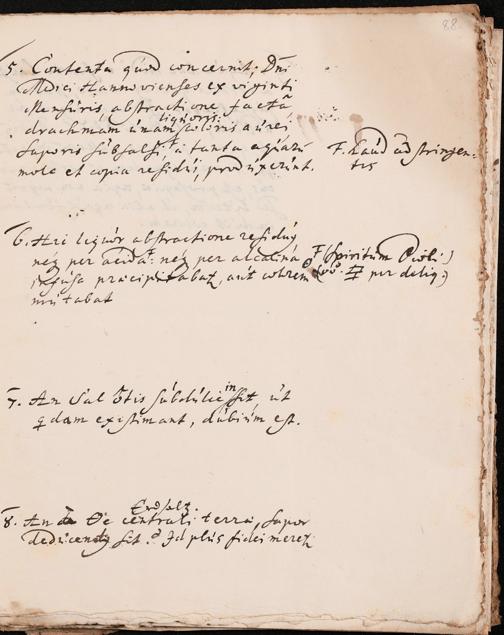 88.
5. Contenta quod concernit; Dni
Medici Hannovienses ex viginti
Mensuris, abstractione factâ
liquoris
drachmam unam, coloris aurei
saporis subsalsi, tanta
mole et copia residui, produxerunt.
F. haud adstringen-
tis
6. Hic liquor abstractione residuus
neq per acida neq per alcalina
infusa praecipitabat, aut colorem
mutabat
F (Spiritum
per deliq;)
7. An Sal subdulce insit, ut
qdam existimant, dubium est.
Erdsaltz.
8. An centrali terra, sapor
deducendus sit? Id plus fidei meret